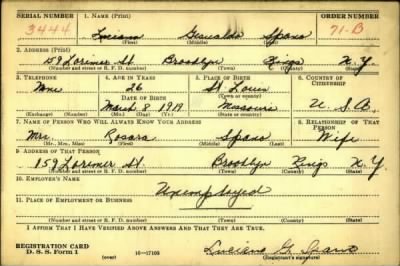 SERIAL NUMBER 1. NAME (Print) ORDER NUMBER
3444 Luciano Spano 71-B
(First) (Middle) (Last)
2. ADDRESS (Print)
159 Lorimer St. Brooklyn Kings N.Y.
(Number and street or R. F. D. number) (Town) (County) (State)
3. TELEPHONE 4. AGE IN YEARS 5. PLACE OF BIRTH 6. COUNTRY OF CITIZENSHIP
None 26 St. Louis
DATE OF BIRTH (Town or county)
March 8 1919 Missouri U.S.A.
(Exchange) (Number) (Mo.) (Day) (Yr.) (State or country)
7. NAME OF PERSON WHO WILL ALWAYS KNOW YOUR ADDRESS 8. RELATIONSHIP OF THAT PERSON
Mrs. Rosara Spano Wife
(Mr., Mrs., Miss) (First) (Middle) (Last)
9. ADDRESS OF THAT PERSON
159 Lorimer St. Brooklyn Kings N.Y.
(Number and street or R. F. D. number) (Town) (County) (State)
10. EMPLOYER'S NAME
Unemployed
11. PLACE OF EMPLOYMENT OR BUSINESS
(Number and street or R. F. D. number) (Town) (County) (State)
I AFFIRM THAT I HAVE VERIFIED ABOVE ANSWERS AND THAT THEY ARE TRUE.
REGISTRATION CARD
D. S. S. Form 1 (over) 16—17105 Luciano G. Spano
(Registrant's signature)